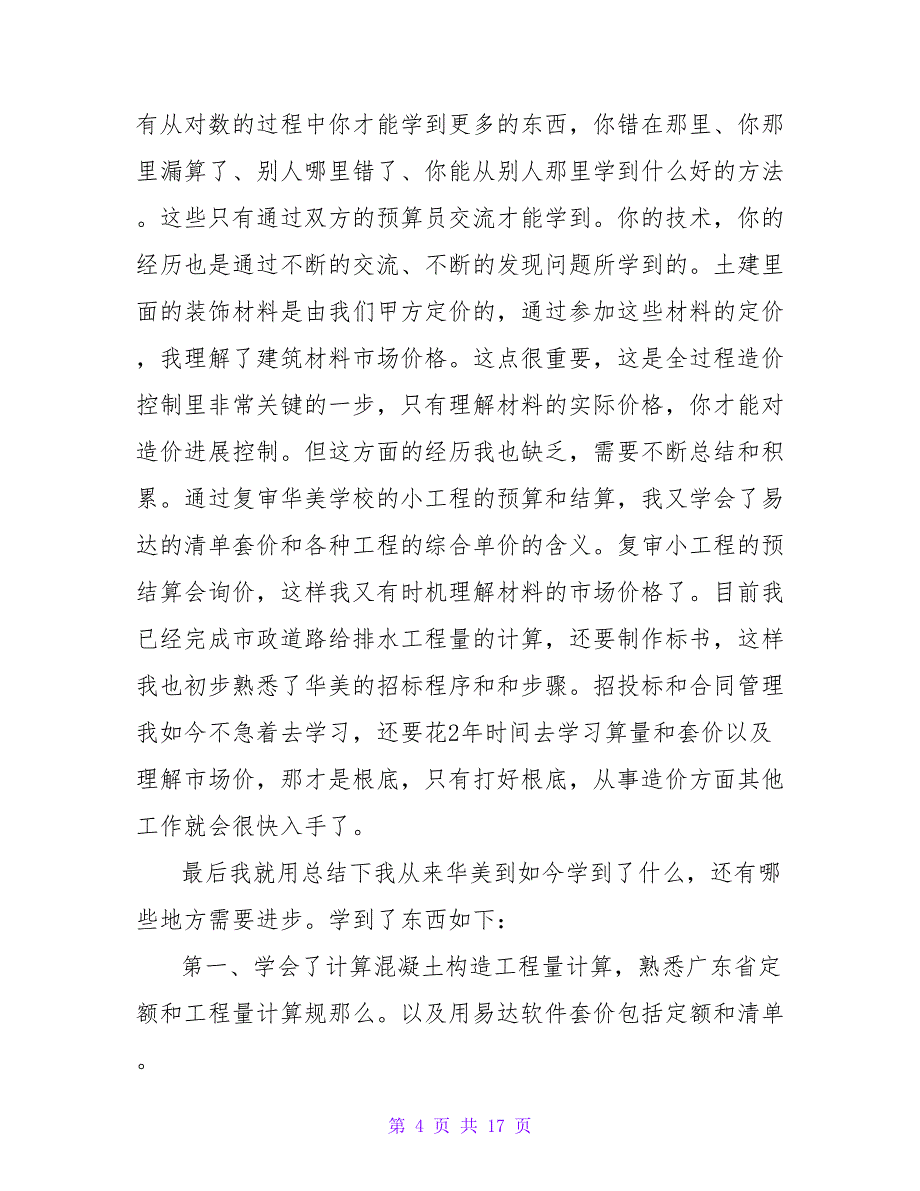 有从对数的过程中你才能学到更多的东西，你错在那里、你那
里漏算了、别人哪里错了、你能从别人那里学到什么好的方法
。这些只有通过双方的预算员交流才能学到。你的技术，你的
经历也是通过不断的交流、不断的发现问题所学到的。土建里
面的装饰材料是由我们甲方定价的，通过参加这些材料的定价
，我理解了建筑材料市场价格。这点很重要，这是全过程造价
控制里非常关键的一步，只有理解材料的实际价格，你才能对
造价进展控制。但这方面的经历我也缺乏，需要不断总结和积
累。通过复审华美学校的小工程的预算和结算，我又学会了易
达的清单套价和各种工程的综合单价的含义。复审小工程的预
结算会询价，这样我又有时机理解材料的市场价格了。目前我
已经完成市政道路给排水工程量的计算，还要制作标书，这样
我也初步熟悉了华美的招标程序和和步骤。招投标和合同管理
我如今不急着去学习，还要花2年时间去学习算量和套价以及
理解市场价，那才是根底，只有打好根底，从事造价方面其他
工作就会很快入手了。
最后我就用总结下我从来华美到如今学到了什么，还有哪
些地方需要进步。学到了东西如下：
第一、学会了计算混凝土构造工程量计算，熟悉广东省定
额和工程量计算规那么。以及用易达软件套价包括定额和清单
。
第 4 页 共 17 页